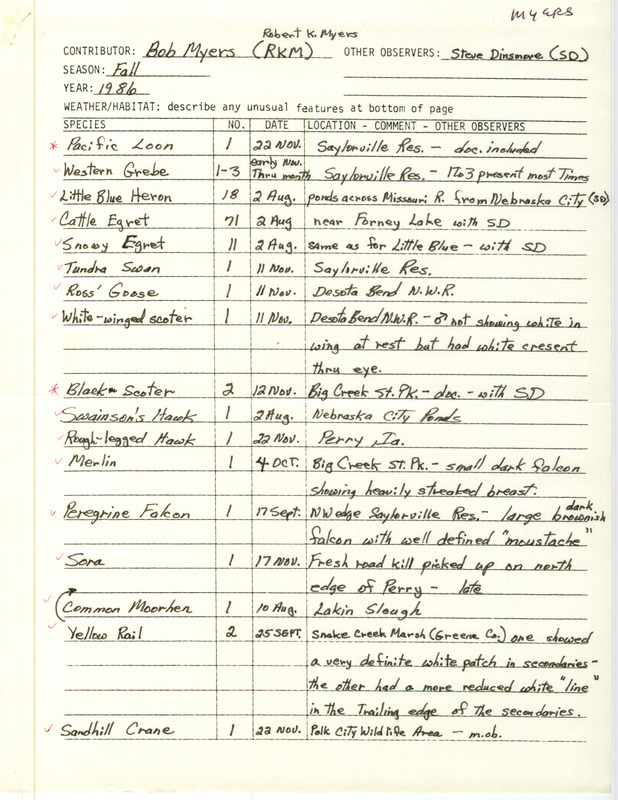 MYERS
Robert K. Myers
CONTRIBUTOR: Bob Myers (RKM) OTHER OBSERVERS: Steve Dinsmore (SD)
SEASON: Fall
YEAR: 1986
WEATHER/HABITAT: describe any unusual features at bottom of page
SPECIES NO. DATE LOCATION - COMMENT - OTHER OBSERVERS
* Pacific Loon 1 22 NOV. Saylorville Res. - doc. included
Western Grebe 1-3 early Nov. Thru month Saylorville Res. - 1 to 3 present most Times
Little Blue Heron 18 2 Aug. ponds across Missouri R. from Nebraska City (SD)
Cattle Egret 71 2 Aug near Forney Lake with SD
Snowy Egret 11 2 Aug. same as for Little Blue - with SD
Tundra Swan 1 11 Nov. Saylorville Res.
Ross' Goose 1 11 Nov. Desota Bend N.W.R.
White-winged scoter 1 11 Nov. Desota Bend N.W.R. - ♂ not showing white in
wing at rest but had white cresent
thru eye.
* Black Scoter 2 12 Nov. Big Creek St. Pk. - doc. - with SD
Swainson's Hawk 1 2 Aug. Nebraska City Ponds
Rough-legged Hawk 1 22 Nov. Perry, Ia.
Merlin 1 4 OCT. Big Creek St. Pk. - small dark falcon
showing heavily streaked breast.
Peregrine Falcon 1 17 Sept. NW edge Saylorville Res. - large dark brownish
falcon with well defined "moustache"
Sora 1 17 NOV. Fresh road kill picked up on north
edge of Perry - late
Common Moorhen 1 10 Aug. Lakin Slough
Yellow Rail 2 25 SEPT. Snake Creek Marsh (Greene Co.) one showed
a very definite white patch in secondaries -
the other had a more reduced white "line"
in the Trailing edge of the secondaries.
Sandhill Crane 1 22 NOV. Polk City Wildlife Area - m.ob.